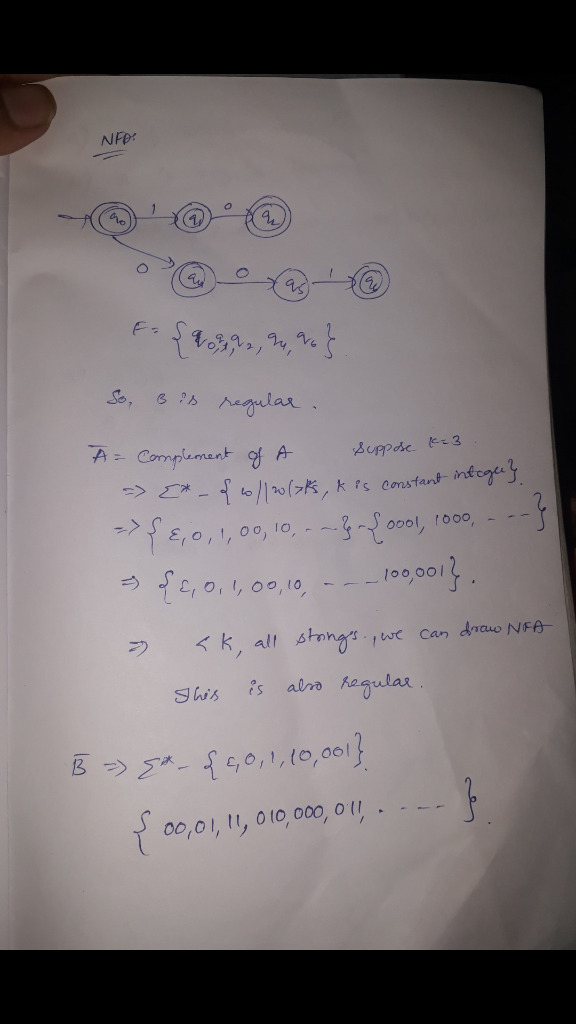 NFA:
q0 1 q1 0 q2
0 q4 0 q5 1 q6
F = {q0, q1, q2, q4, q6}
So, B is regular.
Ā = Complement of A Suppose K=3
=> Σ* - { w | |w| > K, K is constant integer}.
=> { ε, 0, 1, 00, 10, - - - } - { 0001, 1000, - - - - }
=> { ε, 0, 1, 00, 10, - - - - 100, 001 }.
=> < K, all strings, we can draw NFA
This is also regular.
B̄ => Σ* - { ε, 0, 1, 10, 001 }.
{ 00, 01, 11, 010, 000, 011, - - - - - }.